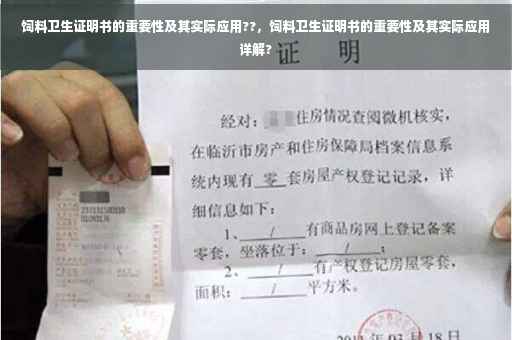 饲料卫生证明书的重要性及其实际应用??，饲料卫生证明书的重要性及其实际应用
详解?
证 明
经对: 住房情况查阅微机核实,
在临沂市房产和住房保障局档案信息系
统内现有 零 套房屋产权登记记录, 详
细信息如下:
1、 / 有商品房网上登记备案
零套, 坐落位于: / ;
2、 / 有产权登记房屋零套,
面积: / 平方米。
03月18日